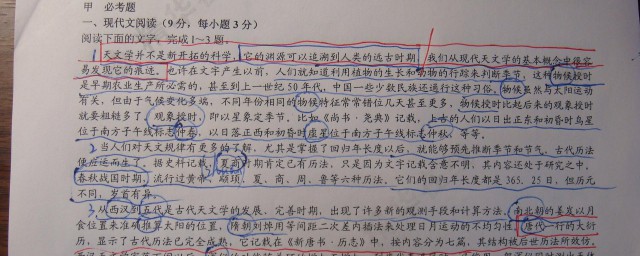 甲 必考题
一、现代文阅读(9分,每小题3分)
阅读下面的文字,完成1~3题。
1 天文学并不是新开拓的科学,它的渊源可以追溯到人类的远古时期。我们从现代天文学的基本概念中很容
易发现它的痕迹。也许在文字产生以前,人们就知道利用植物的生长和动物的行踪来判断季节,这种物候授时
是早期农业生产所必需的,甚至到上一世纪50年代,中国一些少数民族还通行这种习俗。物候虽然与太阳运动
有关,但由于气候变化多端,不同年份相同的物候特征常常错位几天甚至更多,物候授时比起后来的观象授时
就要粗糙多了。观象授时,即以星象定季节。比如《尚书·尧典》记载,上古的人们以日出正东和初昏时鸟星
位于南方子午线标志仲春,以日落正西和初昏时虚星位于南方子午线标志仲秋,等等。
2 当人们对天文规律有更多的了解,尤其是掌握了回归年长度以后,就能够预先推断季节和节气,古代历法
便应运而生了。据史料记载,夏商时期肯定已有历法,只是因为文字记载含意不明,其内容还处于研究之中。
春秋战国时期,流行过黄帝、颛顼、夏、商、周、鲁等六种历法。它们的回归年长度都是365.25日,但历元
不同,岁首有异。
3 从西汉到五代是古代天文学的发展、完善时期,出现了许多新的观测手段和计算方法。南北朝的姜岌以月
食位置来准确推算太阳的位置,隋朝刘焯用等间距二次差内插法来处理日月运动的不均匀性。唐代一行的大衍
历,显示了古代历法已完全成熟,它记载在《新唐书·历志》中,按内容分为七篇,其结构被后世历法所效仿。